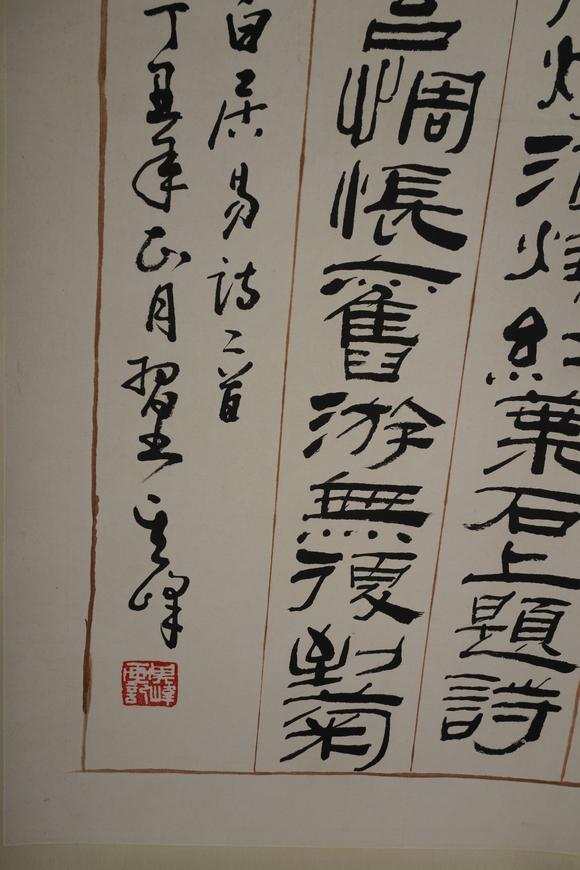 酒燒紅葉石上題詩
惆悵舊游無復到菊
白居易詩二首
丁丑年正月習書其峰
其峰